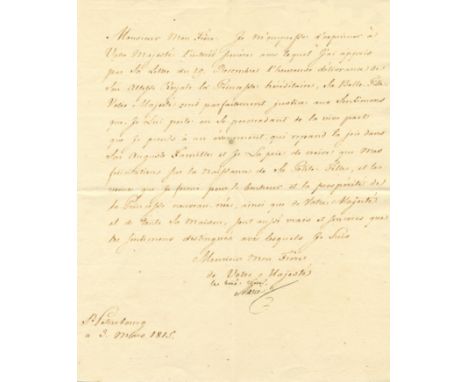 Monsieur Mon Frère. Je m'empresse d'exprimer à
Votre Majesté l'intérêt sincère avec lequel J'ai appris
par Sa Lettre du 29. Decembre l'heureuse délivrance de
Son Altesse Royale la Princesse héréditaire, Sa Belle-Fille
Votre Majesté rend parfaitement justice aux Sentimens
que Je Lui porte en Se persuadant de la vive part
que Je prends à un évenement qui répand la joie dans
Son Auguste Famille; et Je La prie de croire que Mes
félicitations sur la naissance de Sa Petite-Fille, et les
voeux que Je forme pour le bonheur et la prospérité de
la Princesse nouveau-née, ainsi que de Votre Majesté
et de toute Sa Maison, sont aussi vrais et sincères que
les sentimens distingués avec lesquels Je Suis
Monsieur Mon Frère
de Votre Majesté
la
Marie
St Petersbourg
à 3. Mars 1815.